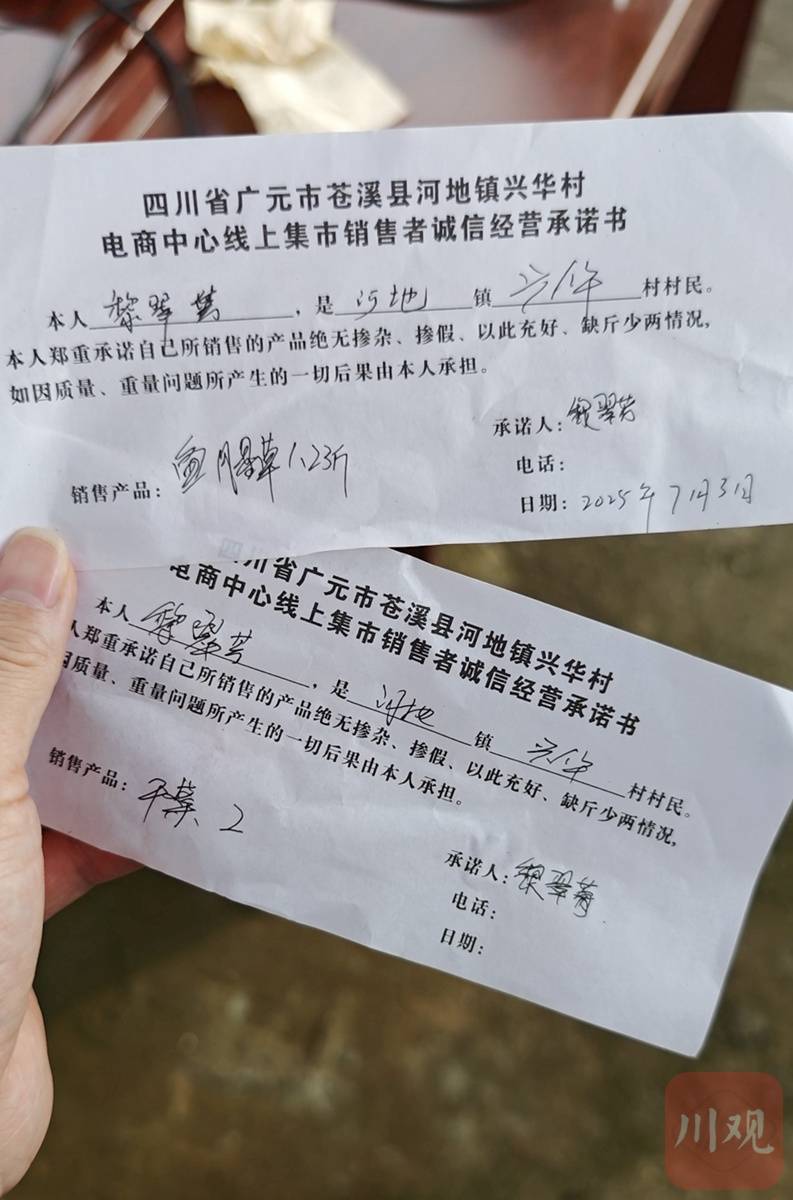 四川省广元市苍溪县河地镇兴华村
电商中心线上集市销售者诚信经营承诺书
本人黎翠芳,是河地镇兴华村村民。
本人郑重承诺自己所销售的产品绝无掺杂、掺假、以此充好、缺斤少两情况,
如因质量、重量问题所产生的一切后果由本人承担。
承诺人:黎翠芳
销售产品:鱼腥草1.23斤
电话:
日期:2025年7月31日
四川省广元市苍溪县河地镇兴华村
电商中心线上集市销售者诚信经营承诺书
本人黎翠芳,是河地镇兴华村村民。
人郑重承诺自己所销售的产品绝无掺杂、掺假、以此充好、缺斤少两情况,
因质量、重量问题所产生的一切后果由本人承担。
销售产品:干 2
承诺人:黎翠芳
电话:
日期:
川观